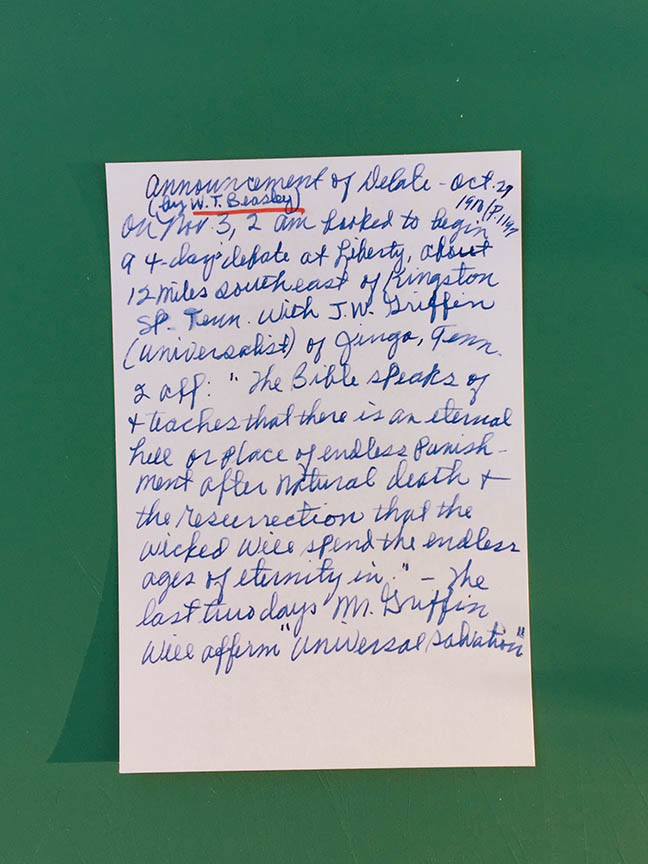 Announcement of Debate - Oct. 29
(by W. T. Beasley) 19 / P. 11
On Nov. 3, 2 am booked to begin
a 4-day debate at Liberty, about
12 miles southeast of Kingston
Sp. Tenn. with J. W. Griffin
(Universalist) of Jingo, Tenn.
2 aff: "The Bible speaks of
+ teaches that there is an eternal
hell or place of endless punish-
ment after natural death +
the resurrection that the
wicked will spend the endless
ages of eternity in." - The
last two days Mr. Griffin
will affirm "Universal salvation"